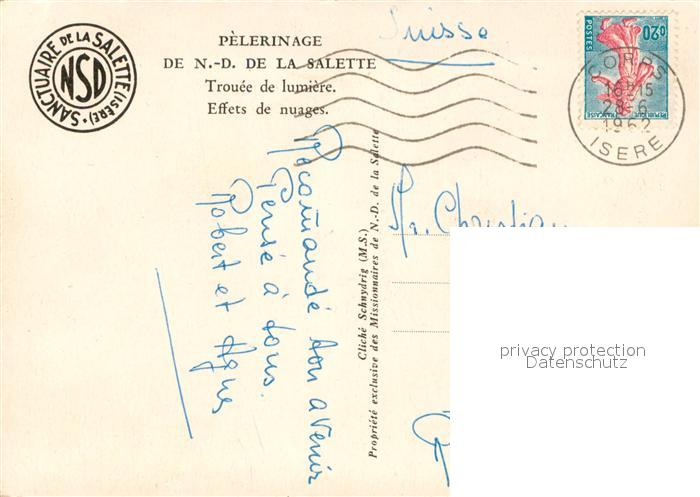 SANCTUAIRE DE LA SALETTE (ISÈRE)
NSD
PÈLERINAGE
DE N.-D. DE LA SALETTE
Trouée de lumière.
Effets de nuages.
Suisse
POSTES
0,20
REPUBLIQUE FRANÇAISE
CORPS
16H15
28-6
1962
ISERE
Recommandé ton avenir
Pensé à tous.
Robert et Agnes
Cliché Schnydrig (M.S.)
Propriété exclusive des Missionnaires de N.-D. de la Salette
Christian
privacy protection
Datenschutz